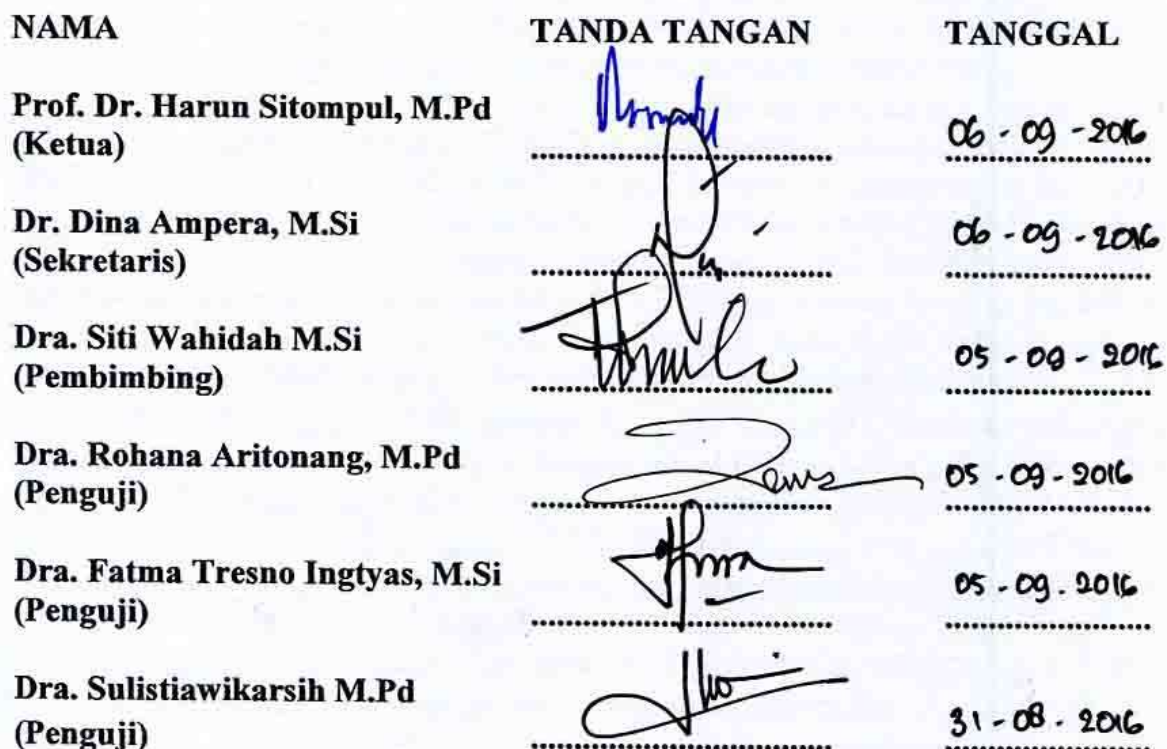 NAMA TANDA TANGAN TANGGAL
Prof. Dr. Harun Sitompul, M.Pd
(Ketua) 06 - 09 - 2016
Dr. Dina Ampera, M.Si
(Sekretaris) 06 - 09 - 2016
Dra. Siti Wahidah M.Si
(Pembimbing) 05 - 09 - 2016
Dra. Rohana Aritonang, M.Pd
(Penguji) 05 - 09 - 2016
Dra. Fatma Tresno Ingtyas, M.Si
(Penguji) 05 - 09 . 2016
Dra. Sulistiawikarsih M.Pd
(Penguji) 31 - 08 - 2016